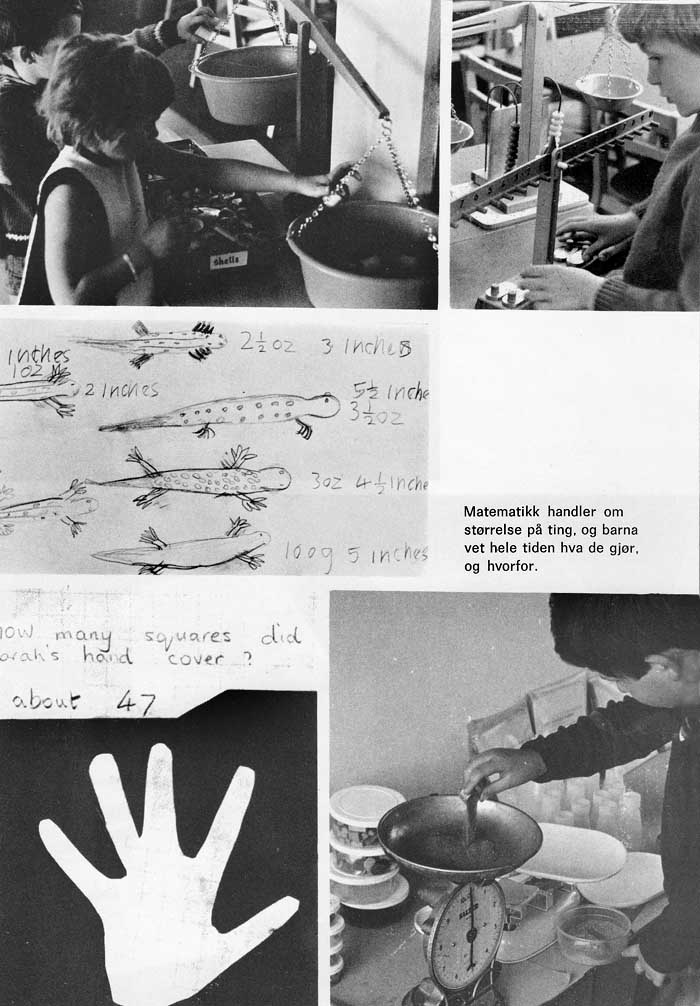 shells
2½ oz 3 Inches
Inches
1 oz
2 Inches
5½ Inche
3½ oz
3 oz 4½ Inche
100g 5 inches
Matematikk handler om
størrelse på ting, og barna
vet hele tiden hva de gjør,
og hvorfor.
how many squares did
arah's hand cover ?
about 47
SALTER